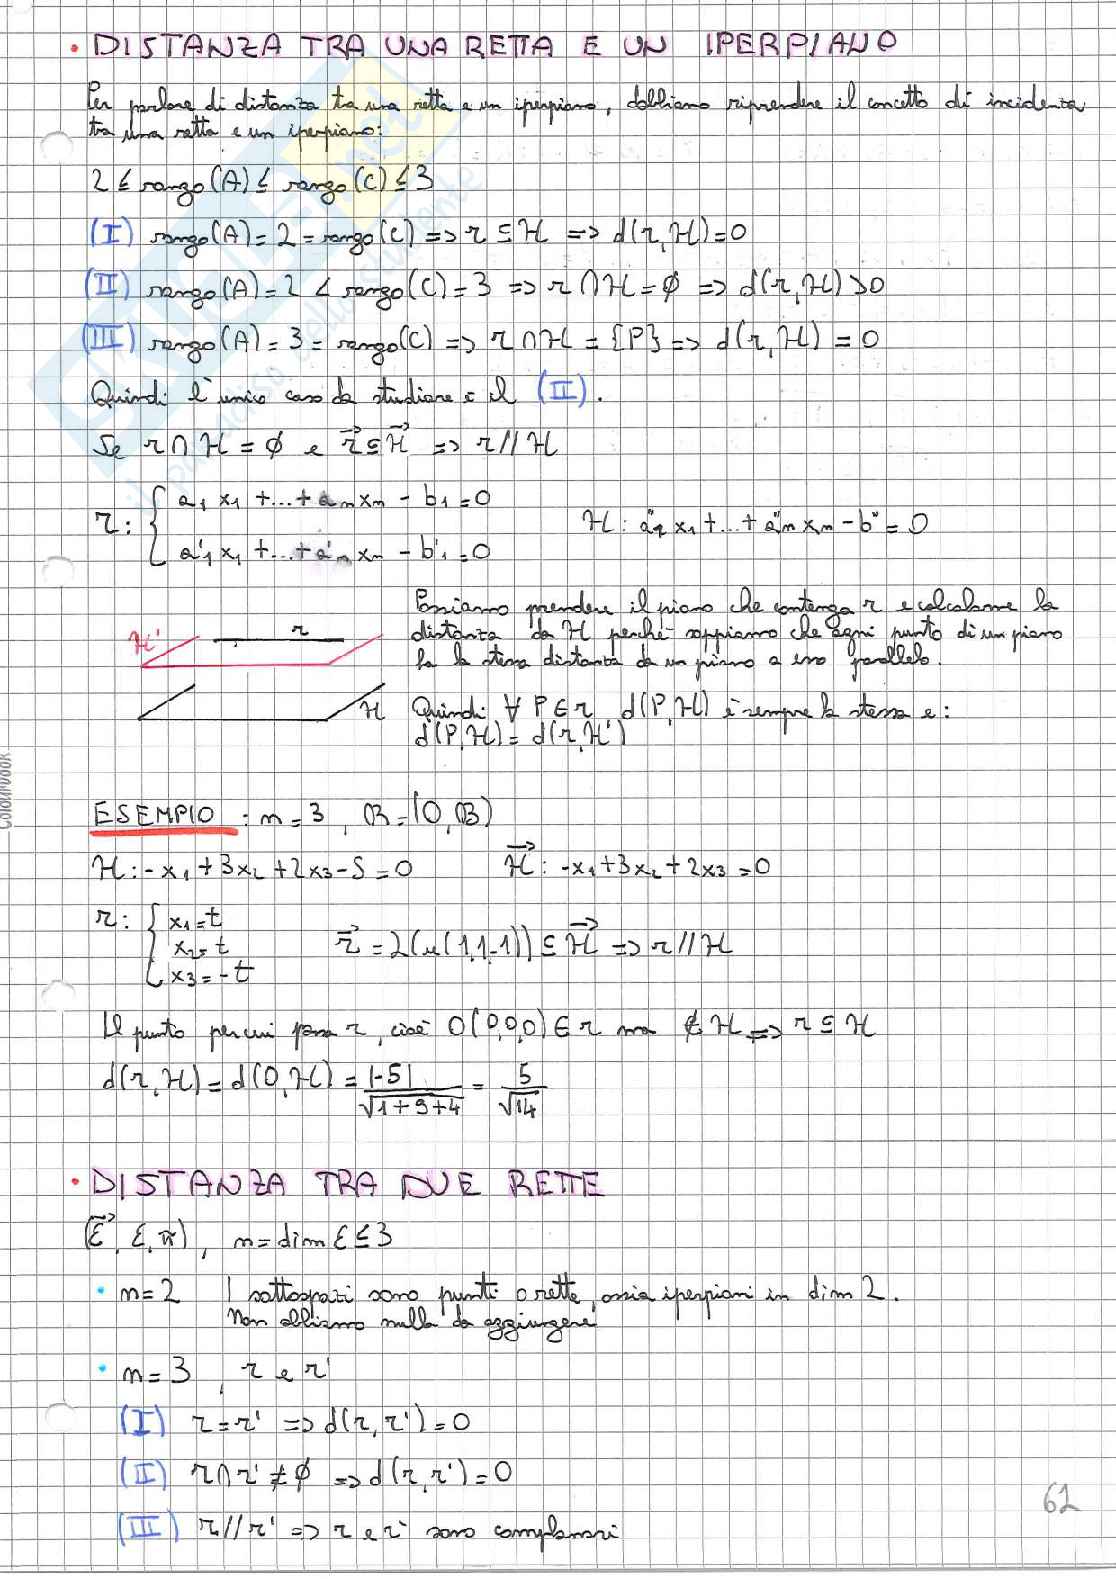 • DISTANZA TRA UNA RETTA E UN IPERPIANO
Per parlare di distanza tra una retta e un iperpiano, dobbiamo riprendere il concetto di incidenza
tra una retta e un iperpiano:
2 ≤ rango(A) ≤ rango(C) ≤ 3
(I) rango(A) = 2 = rango(C) => r ⊆ H => d(r,H) = 0
(II) rango(A) = 2 < rango(C) = 3 => r ∩ H = ∅ => d(r,H) > 0
(III) rango(A) = 3 = rango(C) => r ∩ H = {P} => d(r,H) = 0
Quindi l'unico caso da studiare è il (II).
Se r ∩ H = ∅ e r⃗ ⊆ H⃗ => r // H
r: { a₁x₁ + ... + aₙxₙ - b₁ = 0
a'₁x₁ + ... + a'ₙxₙ - b'₁ = 0
H: a"₁x₁ + ... + a"ₙxₙ - b" = 0
Possiamo prendere il piano che contenga r e calcolarne la
distanza da H perché sappiamo che ogni punto di un piano
ha la stessa distanza da un piano a esso parallelo.
H' r
H
Quindi ∀ P ∈ r, d(P,H) è sempre la stessa e:
d(P,H) = d(r,H')
ESEMPIO : n = 3, R = (O, B)
H: -x₁ + 3x₂ + 2x₃ - 5 = 0 H⃗: -x₁ + 3x₂ + 2x₃ = 0
r: { x₁ = t
x₂ = t
x₃ = -t
r⃗ = L(u(1,1,-1)) ⊆ H⃗ => r // H
Il punto per cui passa r, cioè O(0,0,0) ∈ r ma ∉ H ≠> r ⊆ H
d(r,H) = d(O,H) = |-5| / √1+9+4 = 5 / √14
• DISTANZA TRA DUE RETTE
(E⃗, E, π), n = dim E ≤ 3
• n = 2 I sottospazi sono punti o rette, ossia iperpiani in dim 2.
Non abbiamo nulla da aggiungere
• n = 3, r e r'
(I) r = r' => d(r,r') = 0
(II) r ∩ r' ≠ ∅ => d(r,r') = 0
(III) r // r' => r e r' sono complanari
62
Colourbook